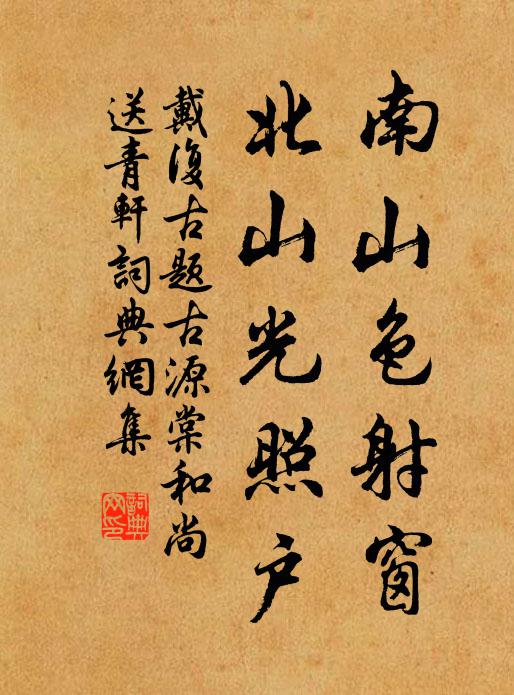 南山色射窗
北山光照户
戴復古題古源棠和尚
送青軒詞典網集
詞典
网印